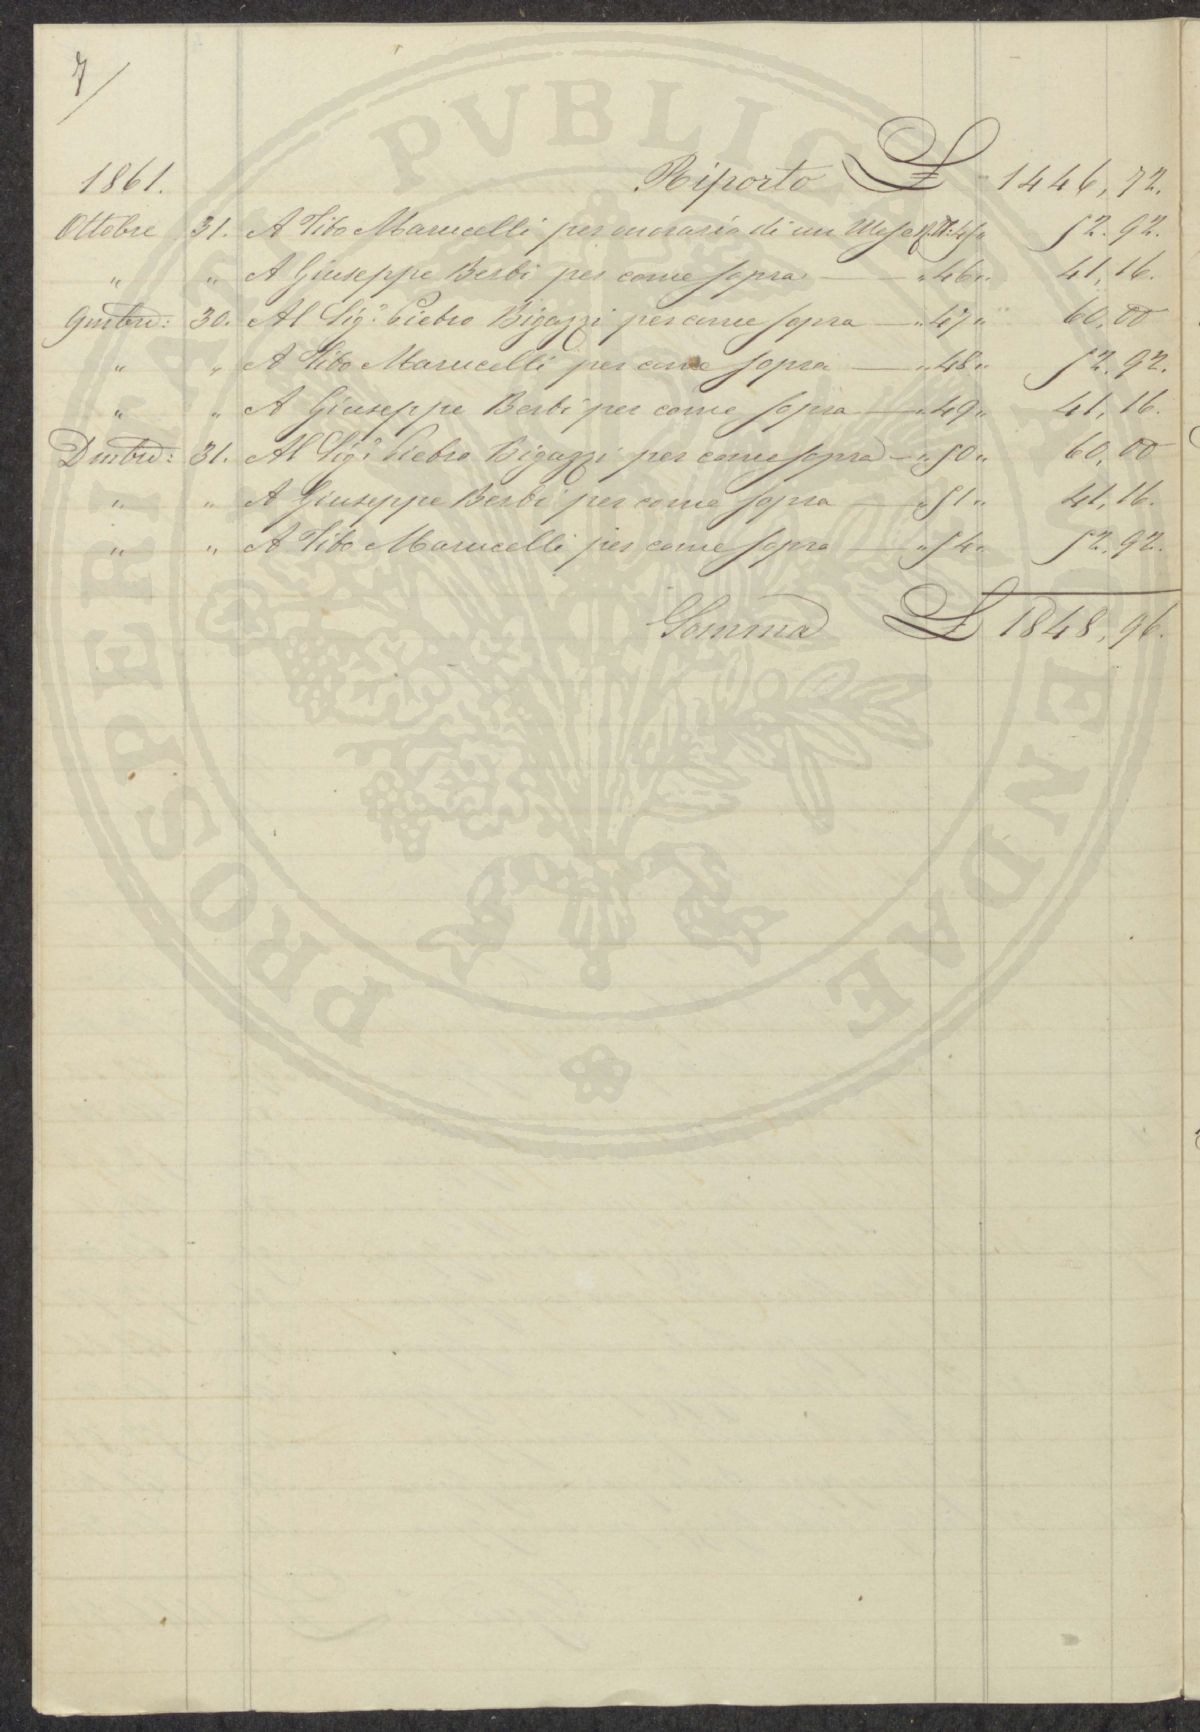 7
1861. Riporto £ 1446, 72.
Ottobre 31. A Tito Marucelli per onorario di un Mese N: 45 „ 52. 92.
„ „ A Giuseppe Berbi per come sopra — „ 46 „ 41, 16.
Gmbre: 30. Al Sig.r Pietro Bigazzi per come sopra — „ 47 „ 60, 00
„ „ A Tito Marucelli per come sopra — „ 48 „ 52. 92.
„ „ A Giuseppe Berbi per come sopra — „ 49 „ 41, 16.
Dmbre: 31. Al Sig.r Pietro Bigazzi per come sopra — „ 50 „ 60, 00
„ „ A Giuseppe Berbi per come sopra — „ 51 „ 41, 16.
„ „ A Tito Marucelli per come sopra — „ 54 „ 52. 92.
Somma £ 1848, 96.
PROSPERITATI PVBLICAE AVGENDAE